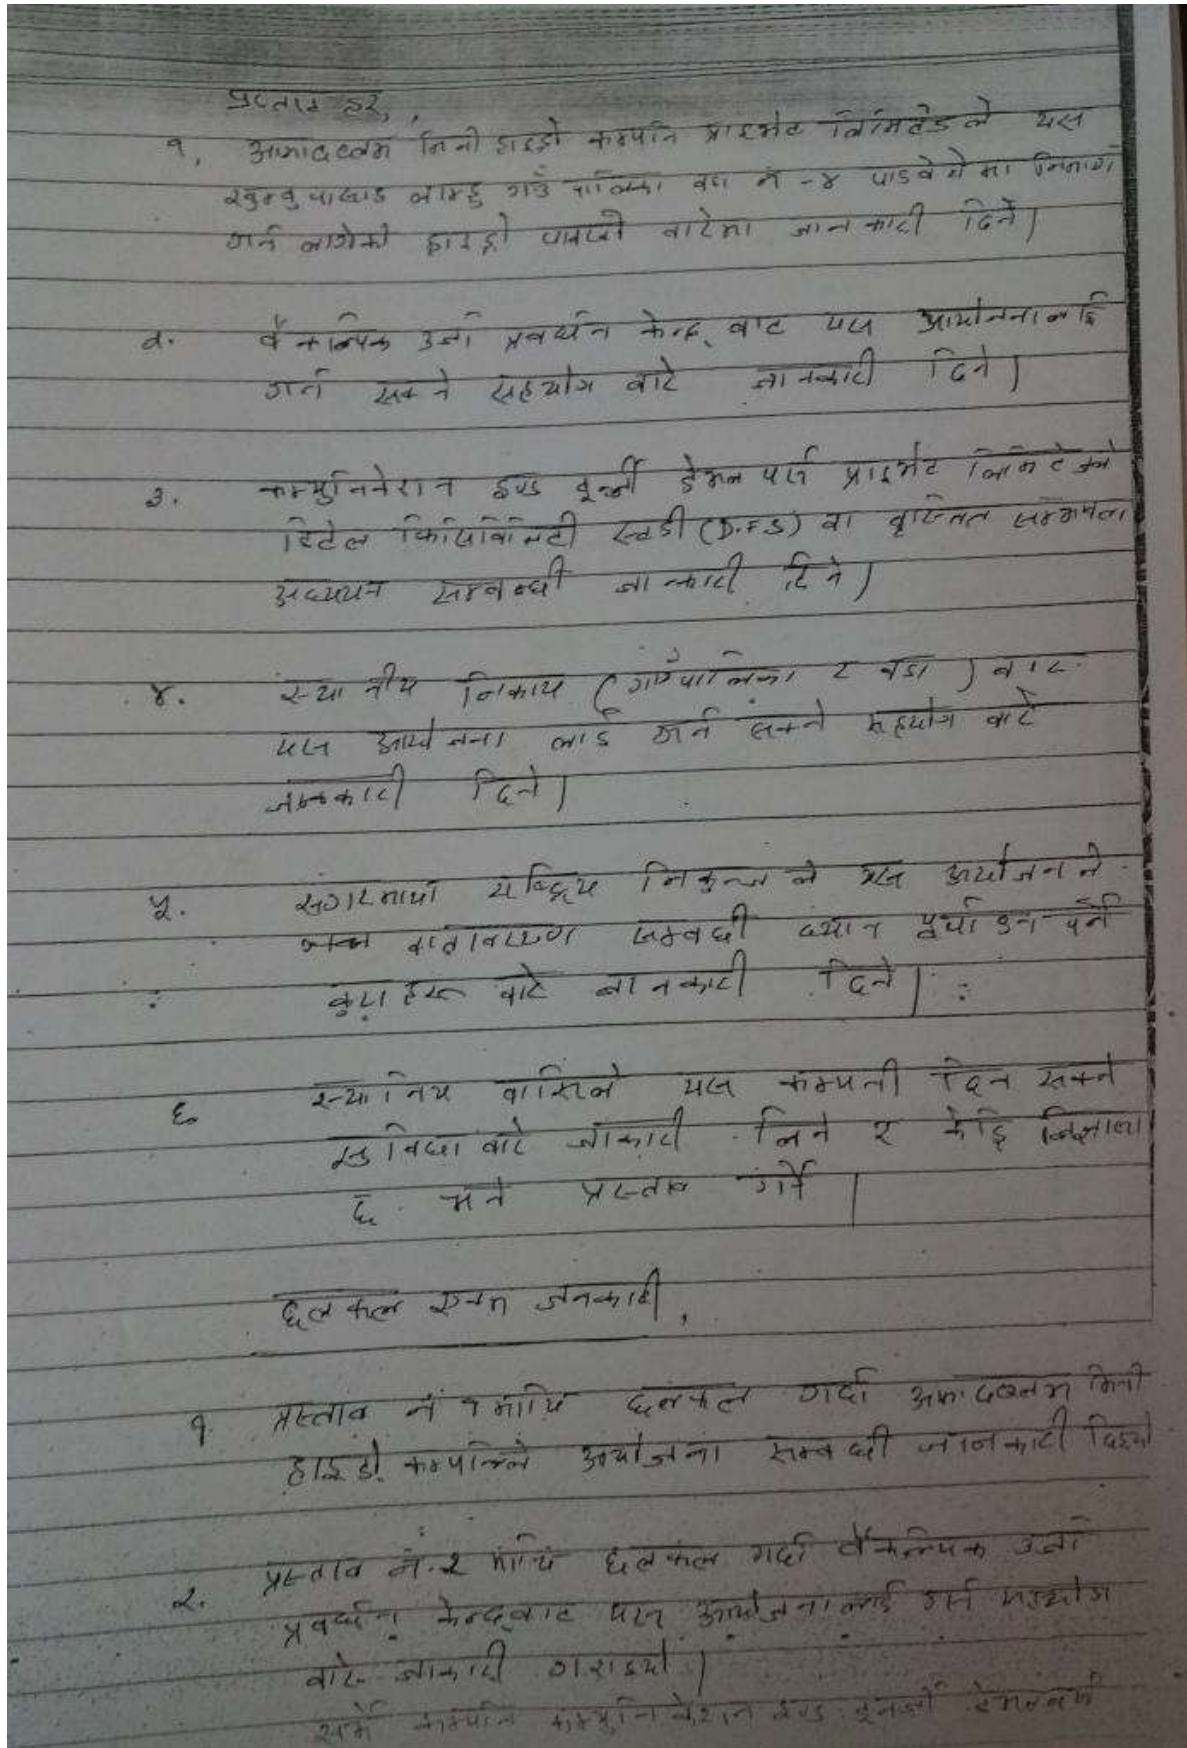 प्रस्ताव हरु,
१. मिनी हाइड्रो कम्पनि प्राइभेट लिमिटेड ले यस
खुम्बु पासाङ ल्हाम्हु गाउँ पालिका वडा नं -४ मा निर्माण
गर्न लागेको हाइड्रो बारेमा जानकारी दिने।
२. वैकल्पिक उर्जा प्रवर्धन केन्द्र बाट यस आयोजनालाई
गर्न सक्ने सहयोग बारे जानकारी दिने।
३. कम्युनिकेशन इण्ड प्राइभेट लिमिटेडले
डिटेल फिसिविलिटी स्टडी (D.F.S) वा सम्भाव्यता
अध्ययन सम्बन्धी जाकारी दिने।
४. स्थानीय निकाय (गाउँपालिका र वडा) बाट
यस आयोजना लाई गर्न सक्ने सहयोग बारे
जानकारी दिने।
५. सगरमाथा राष्ट्रिय निकुन्ज ले यस आयोजनाले
वातावरण सम्बधी ध्यान पूर्याउन पर्ने
कुराहरु बारे जानकारी दिने।
६ स्थानिय वासिले यस कम्पनी दिन सक्ने
सुविधा बारे जाकारी लिने र केहि जिज्ञासा
छ भने प्रस्ताव गर्ने।
छलफल एवम जनकारी,
१. प्रस्ताव नं १ माथि छलफल गर्दा मिनी
हाइड्रो कम्पनिले आयोजना सम्बधी जानकारी दिइयो
२. प्रस्ताव नं. २ माथि छलफल गर्दा वैकल्पिक उर्जा
प्रवर्धन केन्द्रबाट यस आयोजनालाई गर्ने सहयोग
बारे जाकारी गराइयो।
कम्पनि कम्युनिकेशन इण्ड इनर्जी